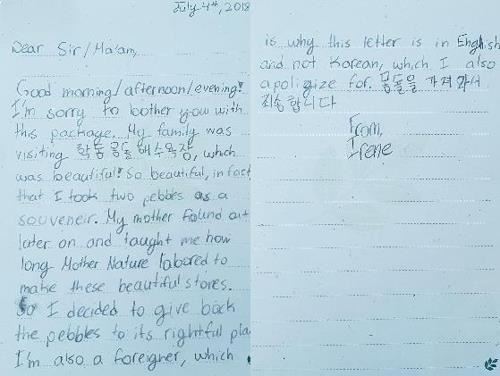 July 4th, 2018
Dear Sir/Ma'am,
Good morning/afternoon/evening!
I'm sorry to bother you with
this package. My family was
visiting 학동 몽돌 해수욕장, which
was beautiful! So beautiful, in fact
that I took two pebbles as a
souveneir. My mother found out
later on and taught me how
long Mother Nature labored to
make these beautiful stones.
So I decided to give back
the pebbles to its rightful pla
I'm also a foreigner, which
is why this letter is in English
and not Korean, which I also
apoligize for. 몽돌을 가져가서
죄송합니다
From,
Irene